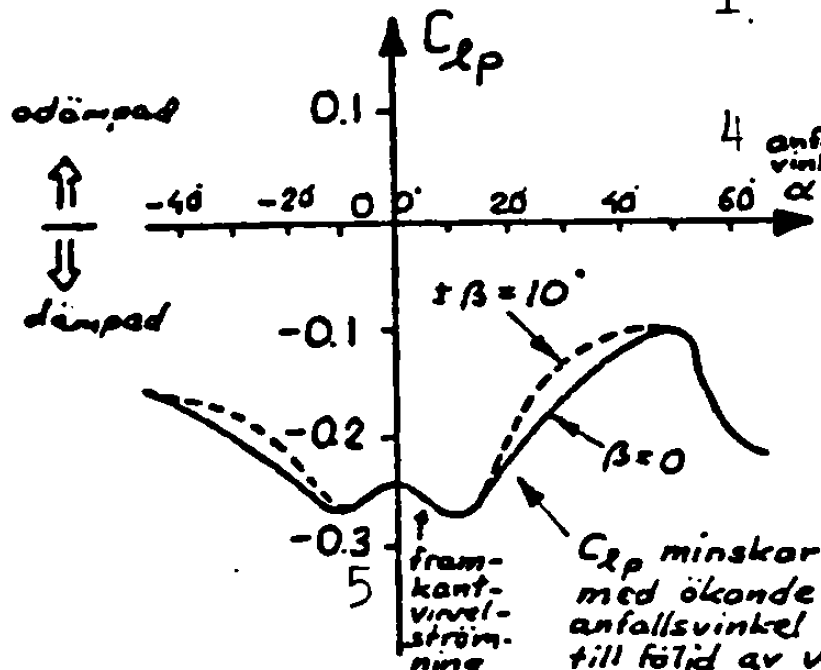 1.
C_lp
odämpad
0.1
4
anf
vink
α
-40° -20° 0 0° 20° 40° 60°
dämpad
±β=10°
-0.1
-0.2
β=0
-0.3
5
fram-
kant-
virvel-
ström-
ning
C_lp minskar
med ökande
anfallsvinkel
till följd av v